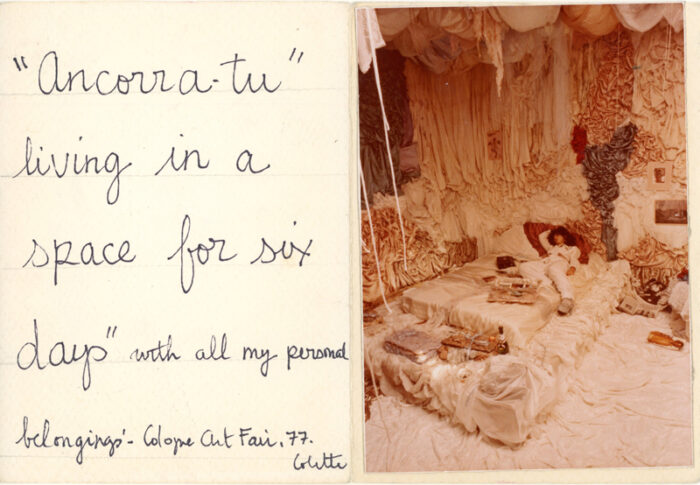 "Ancorra-tu"
living in a
space for six
days" with all my personal
belongings'- Cologne Art Fair. 77.
Colette